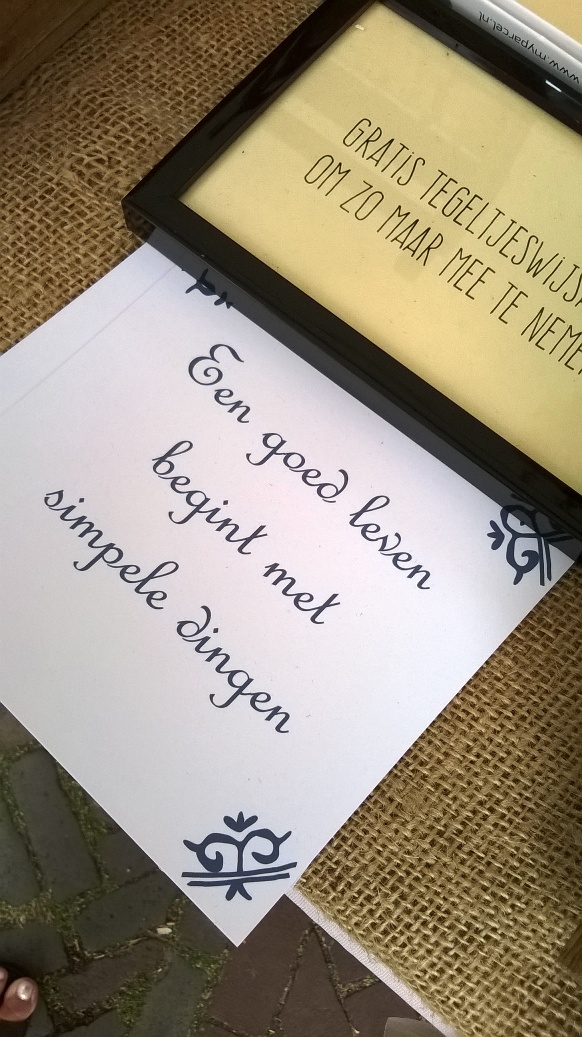 www.myparcel.nl
GRATIS
OM ZO MAAR MEE TE
Een goed leven
begint met
simpele dingen